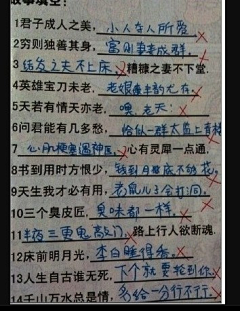 1君子成人之美, 小人夺人所爱
2穷则独善其身, 富则妻妾成群
3结发之夫不上床, 糟糠之妻不下堂.
4英雄宝刀未老, 老娘丰韵尤存
5天若有情天亦老, 嘿,老天!
6问君能有几多愁, 恰似一群太监上青楼
7 心肌梗塞遇神医, 心有灵犀一点通.
8书到用时方恨少, 钱到月底不够花,
9天生我才必有用, 老鼠儿子会打洞.
10三个臭皮匠, 臭味都一样.
11半夜三更鬼敲门, 路上行人欲断魂.
12床前明月光, 李白睡得香.
13人生自古谁无死, 下个就要轮到你
14千山万水总是情, 多给一分行不行.